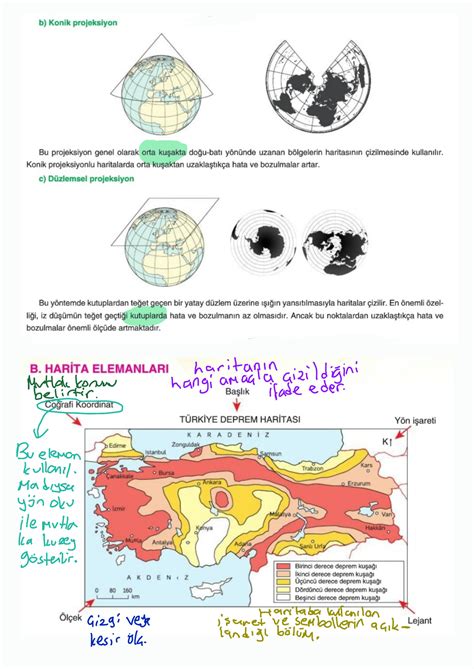 b) Konik projeksiyon
Bu projeksiyon genel olarak orta kuşakta doğu-batı yönünde uzanan bölgelerin haritasının çizilmesinde kullanılır.
Konik projeksiyonlu haritalarda orta kuşaktan uzaklaştıkça hata ve bozulmalar artar.
c) Düzlemsel projeksiyon
Bu yöntemde kutuplardan teğet geçen bir yatay düzlem üzerine ışığın yansıtılmasıyla haritalar çizilir. En önemli özel-
liği, iz düşümün teğet geçtiği kutuplarda hata ve bozulmanın az olmasıdır. Ancak bu noktalardan uzaklaştıkça hata ve
bozulmalar önemli ölçüde artmaktadır.
B. HARİTA ELEMANLARI
haritanın
hangi amaçla çizildiğini
ifade eder.
Mutlak konum
belirtir.
Başlık
Coğrafi Koordinat
TÜRKİYE DEPREM HARİTASI
Yön işareti
Bu eleman
kullanıl.
Madıysa
yön oku
ile mutla
ka kuzey
gösterilir.
KARADENİZ
K
Edirne
İstanbul
Zonguldak
Samsun
Trabzon
Kars
Çanakkale
Bursa
Ankara
Erzurum
İzmir
Konya
Malatya
Van
Hakkâri
Muğla
Antalya
Adana
Şanlı Urfa
AKDENİZ
0 80 160 km
Birinci derece deprem kuşağı
İkinci derece deprem kuşağı
Üçüncü derece deprem kuşağı
Dördüncü derece deprem kuşağı
Beşinci derece deprem kuşağı
Ölçek
Çizgi veya
kesir ölç.
Haritada kullanılan
işaret ve sembollerin açık-
landığı bölüm.
Lejant